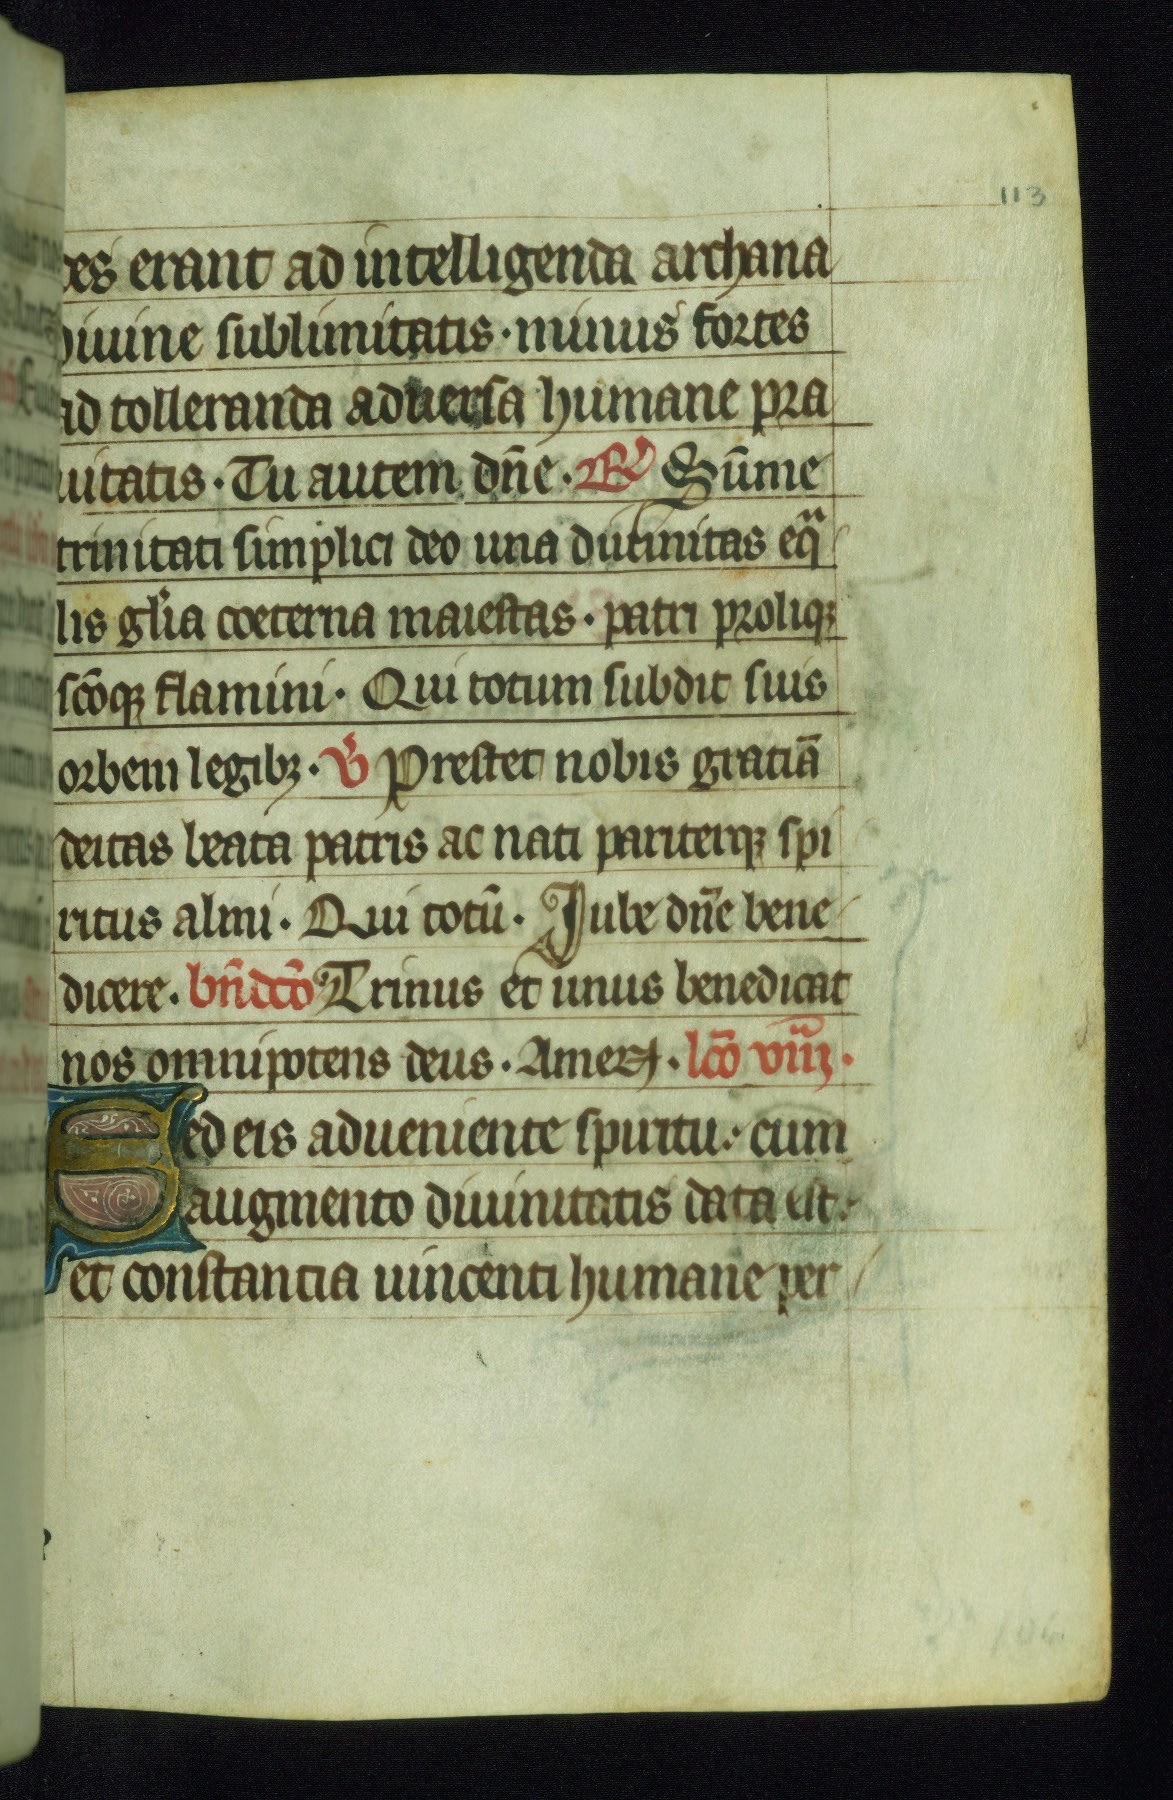 113
des erant ad intelligenda archana
diuine sublimitatis · minus fortes
ad tolleranda aduersa humane pra
uitatis · Tu autem dn̄e · R̸ Sūme
trinitati simplici deo una diuinitas eqͣ
lis gl̓ia coeterna maiestas · patri proliqꝫ
sc̄oqꝫ flamini · Qui totum subdit suis
orbem legibꝫ · v̓ Prestet nobis gratiā
deitas beata patris ac nati pariterqꝫ spi
ritus almi · Qui totū · Jube dn̄e bene
dicere · bn̄dc̄o Trinus et unus benedicat
nos omnipotens deus · Amen · lc̄o viii ·
Sed eis adueniente spiritu : cum
augmento diuinitatis data est :
et constantia uincenti humane per